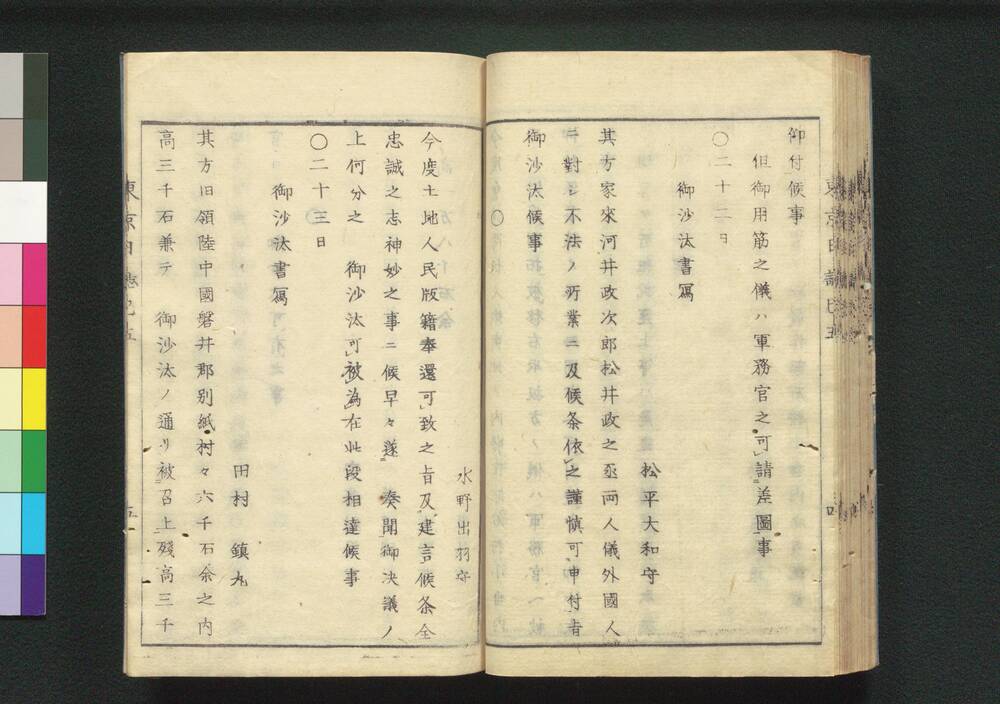 仰付候事
但御用筋之儀ハ軍務官之可請差圖事
〇二十二日
御沙汰書寫
松平大和守
其方家來河井政次郎松井政之丞両人儀外國人
ニ對シ不法ノ所業ニ及候条依之謹慎可申付旨
御沙汰候事
水野出羽守
今度土地人民版籍奉還可致之旨及建言候条全
忠誠之志神妙之事ニ候早々遂 奏聞御决議ノ
上何分之 御沙汰可被為在此段相達候事
〇二十三日
御沙汰書寫
田村 鎮丸
其方旧領陸中國磐井郡別紙村々六千石余之内
高三千石兼テ 御沙汰ノ通リ被召上殘高三千
東京日誌巳五